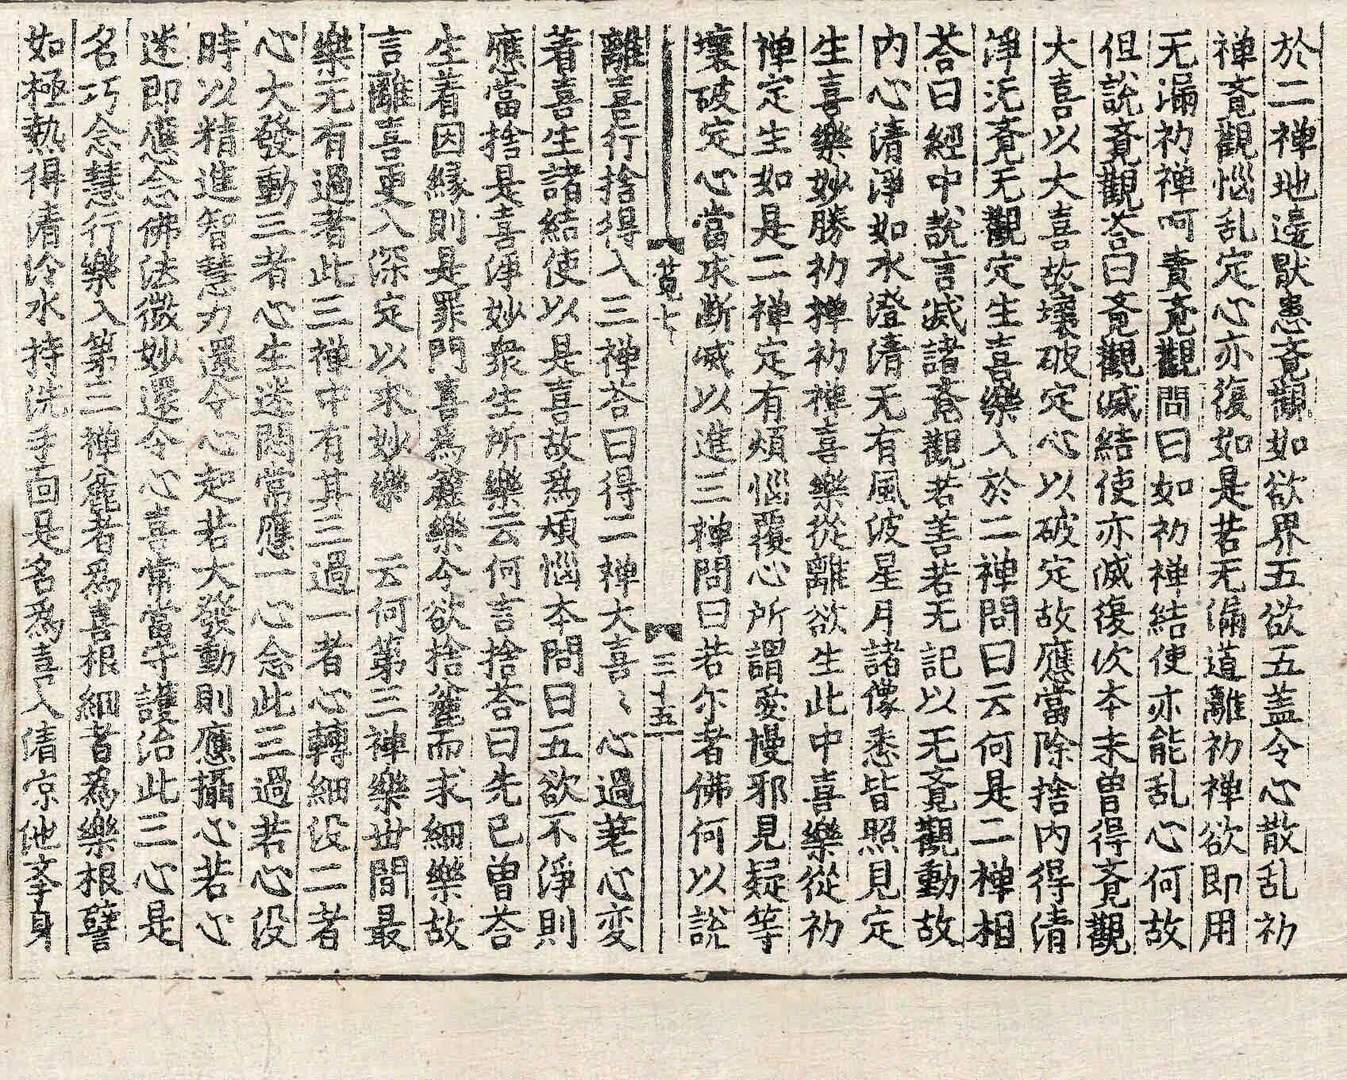 於二禅地邉猒患竟觀如欲界五欲五盖令心散乱初
禅竟觀惱乱定心亦復如是若无漏道離初禅欲即用
无漏初禅呵責竟觀問曰如初禅結使亦能乱心何故
但說竟觀荅曰竟觀滅結使亦滅復次本末曽得竟觀
大喜以大喜故壞破定心以破定故應當除捨内得清
淨无竟无觀定生喜樂入於二禅問曰云何是二禅相
荅曰經中說言滅諸竟觀若善若无記以无竟觀動故
内心清淨如水澄清无有風波星月諸像悉皆照見定
生喜樂妙勝初禅初禅喜樂從離欲生此中喜樂從初
禅定生如是二禅定有煩惱覆心所謂愛慢邪見疑等
壞破定心當求断滅以進三禅問曰若尓者佛何以說
竟七 三十五
離喜行捨得入三禅荅曰得二禅大喜〻心過差心变
着喜生諸結使以是喜故爲煩惱本問曰五欲不淨則
應當捨是喜淨妙衆生所樂云何言捨荅曰先已曽荅
生着因縁則是罪門喜爲麄樂今欲捨麄而求細樂故
言離喜更入深定以求妙樂 云何第三禅樂丗間最
樂无有過者此三禅中有其三過一者心轉細没二者
心大發動三者心生迷悶常應一心念此三過若心没
時以精進智慧力還令心起若大發動則應攝心若心
迷即應念佛法微妙還令心喜常當守護治此三心是
名巧念慧行樂入第三禅麄者爲喜根細者爲樂根譬
如極熱得清冷水持洗手面是名爲喜入清凉池㪯身